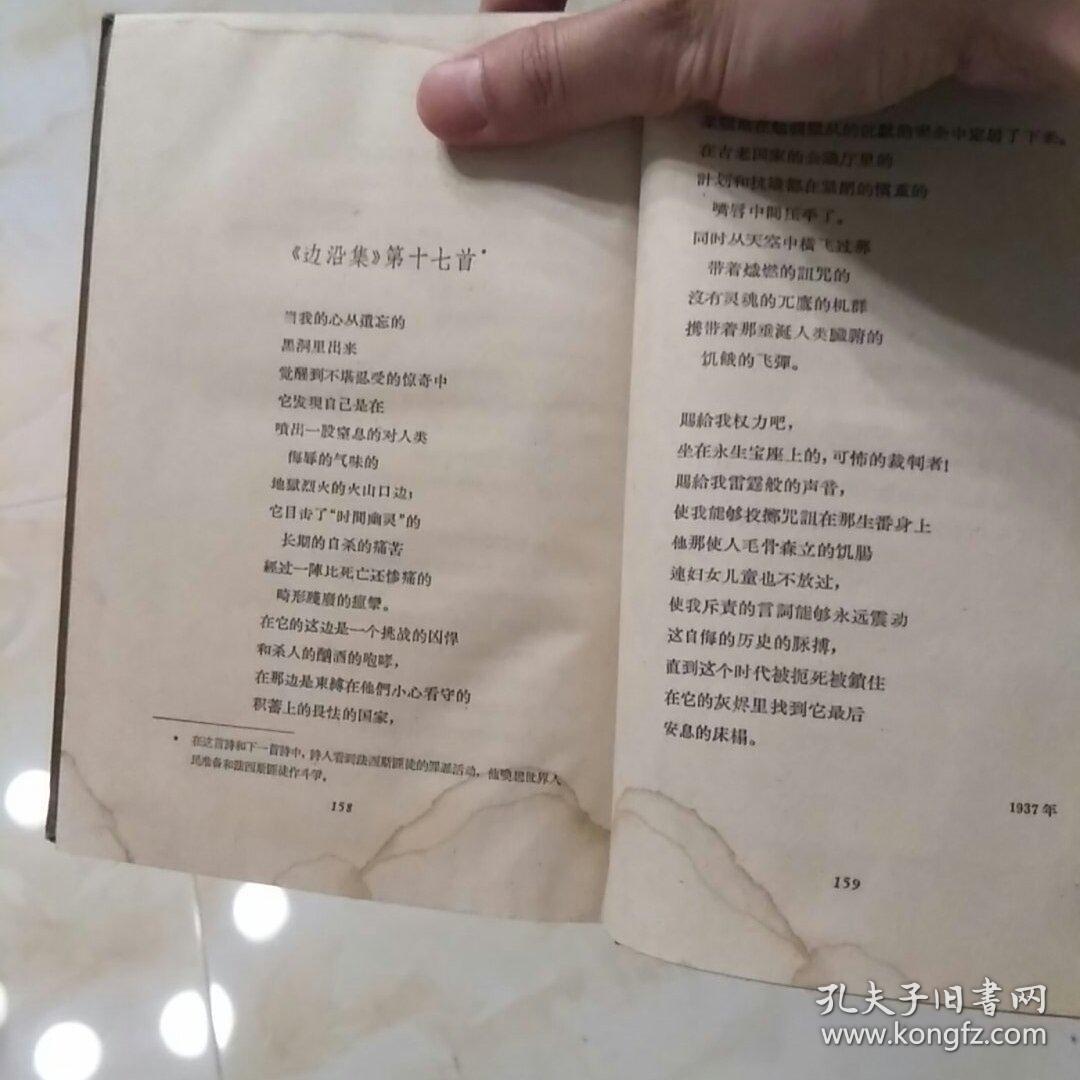 《边沿集》第十七首*
当我的心从遺忘的
黑洞里出来
觉醒到不堪忍受的惊奇中
它发現自己是在
噴出一股窒息的对人类
侮辱的气味的
地獄烈火的火山口边；
它目击了“时間幽灵”的
长期的自杀的痛苦
經过一陣比死亡还惨痛的
畸形殘廢的痙攣。
在它的这边是一个挑战的凶悍
和杀人的酗酒的咆哮，
在那边是束縛在他們小心看守的
积蓄上的畏怯的国家，
* 在这首詩和下一首詩中，詩人看到法西斯匪徒的罪恶活动，他喚起世界人
民准备和法西斯匪徒作斗爭。
158
的沉默的安全中定居了下来。
在古老国家的会議厅里的
計划和抗議都在緊閉的慎重的
嘴唇中間压平了。
同时从天空中橫飞过那
带着熾燃的詛咒的
沒有灵魂的兀鷹的机群
携带着那垂涎人类臟腑的
饥餓的飞彈。
賜給我权力吧，
坐在永生宝座上的，可怖的裁判者！
賜給我雷霆般的声音，
使我能够投擲咒詛在那生番身上
他那使人毛骨森立的饥腸
連妇女儿童也不放过，
使我斥責的言詞能够永远震动
这自侮的历史的脉搏，
直到这个时代被扼死被鎖住
在它的灰烬里找到它最后
安息的床榻。
1937年
159
孔夫子旧書网
www.kongfz.com